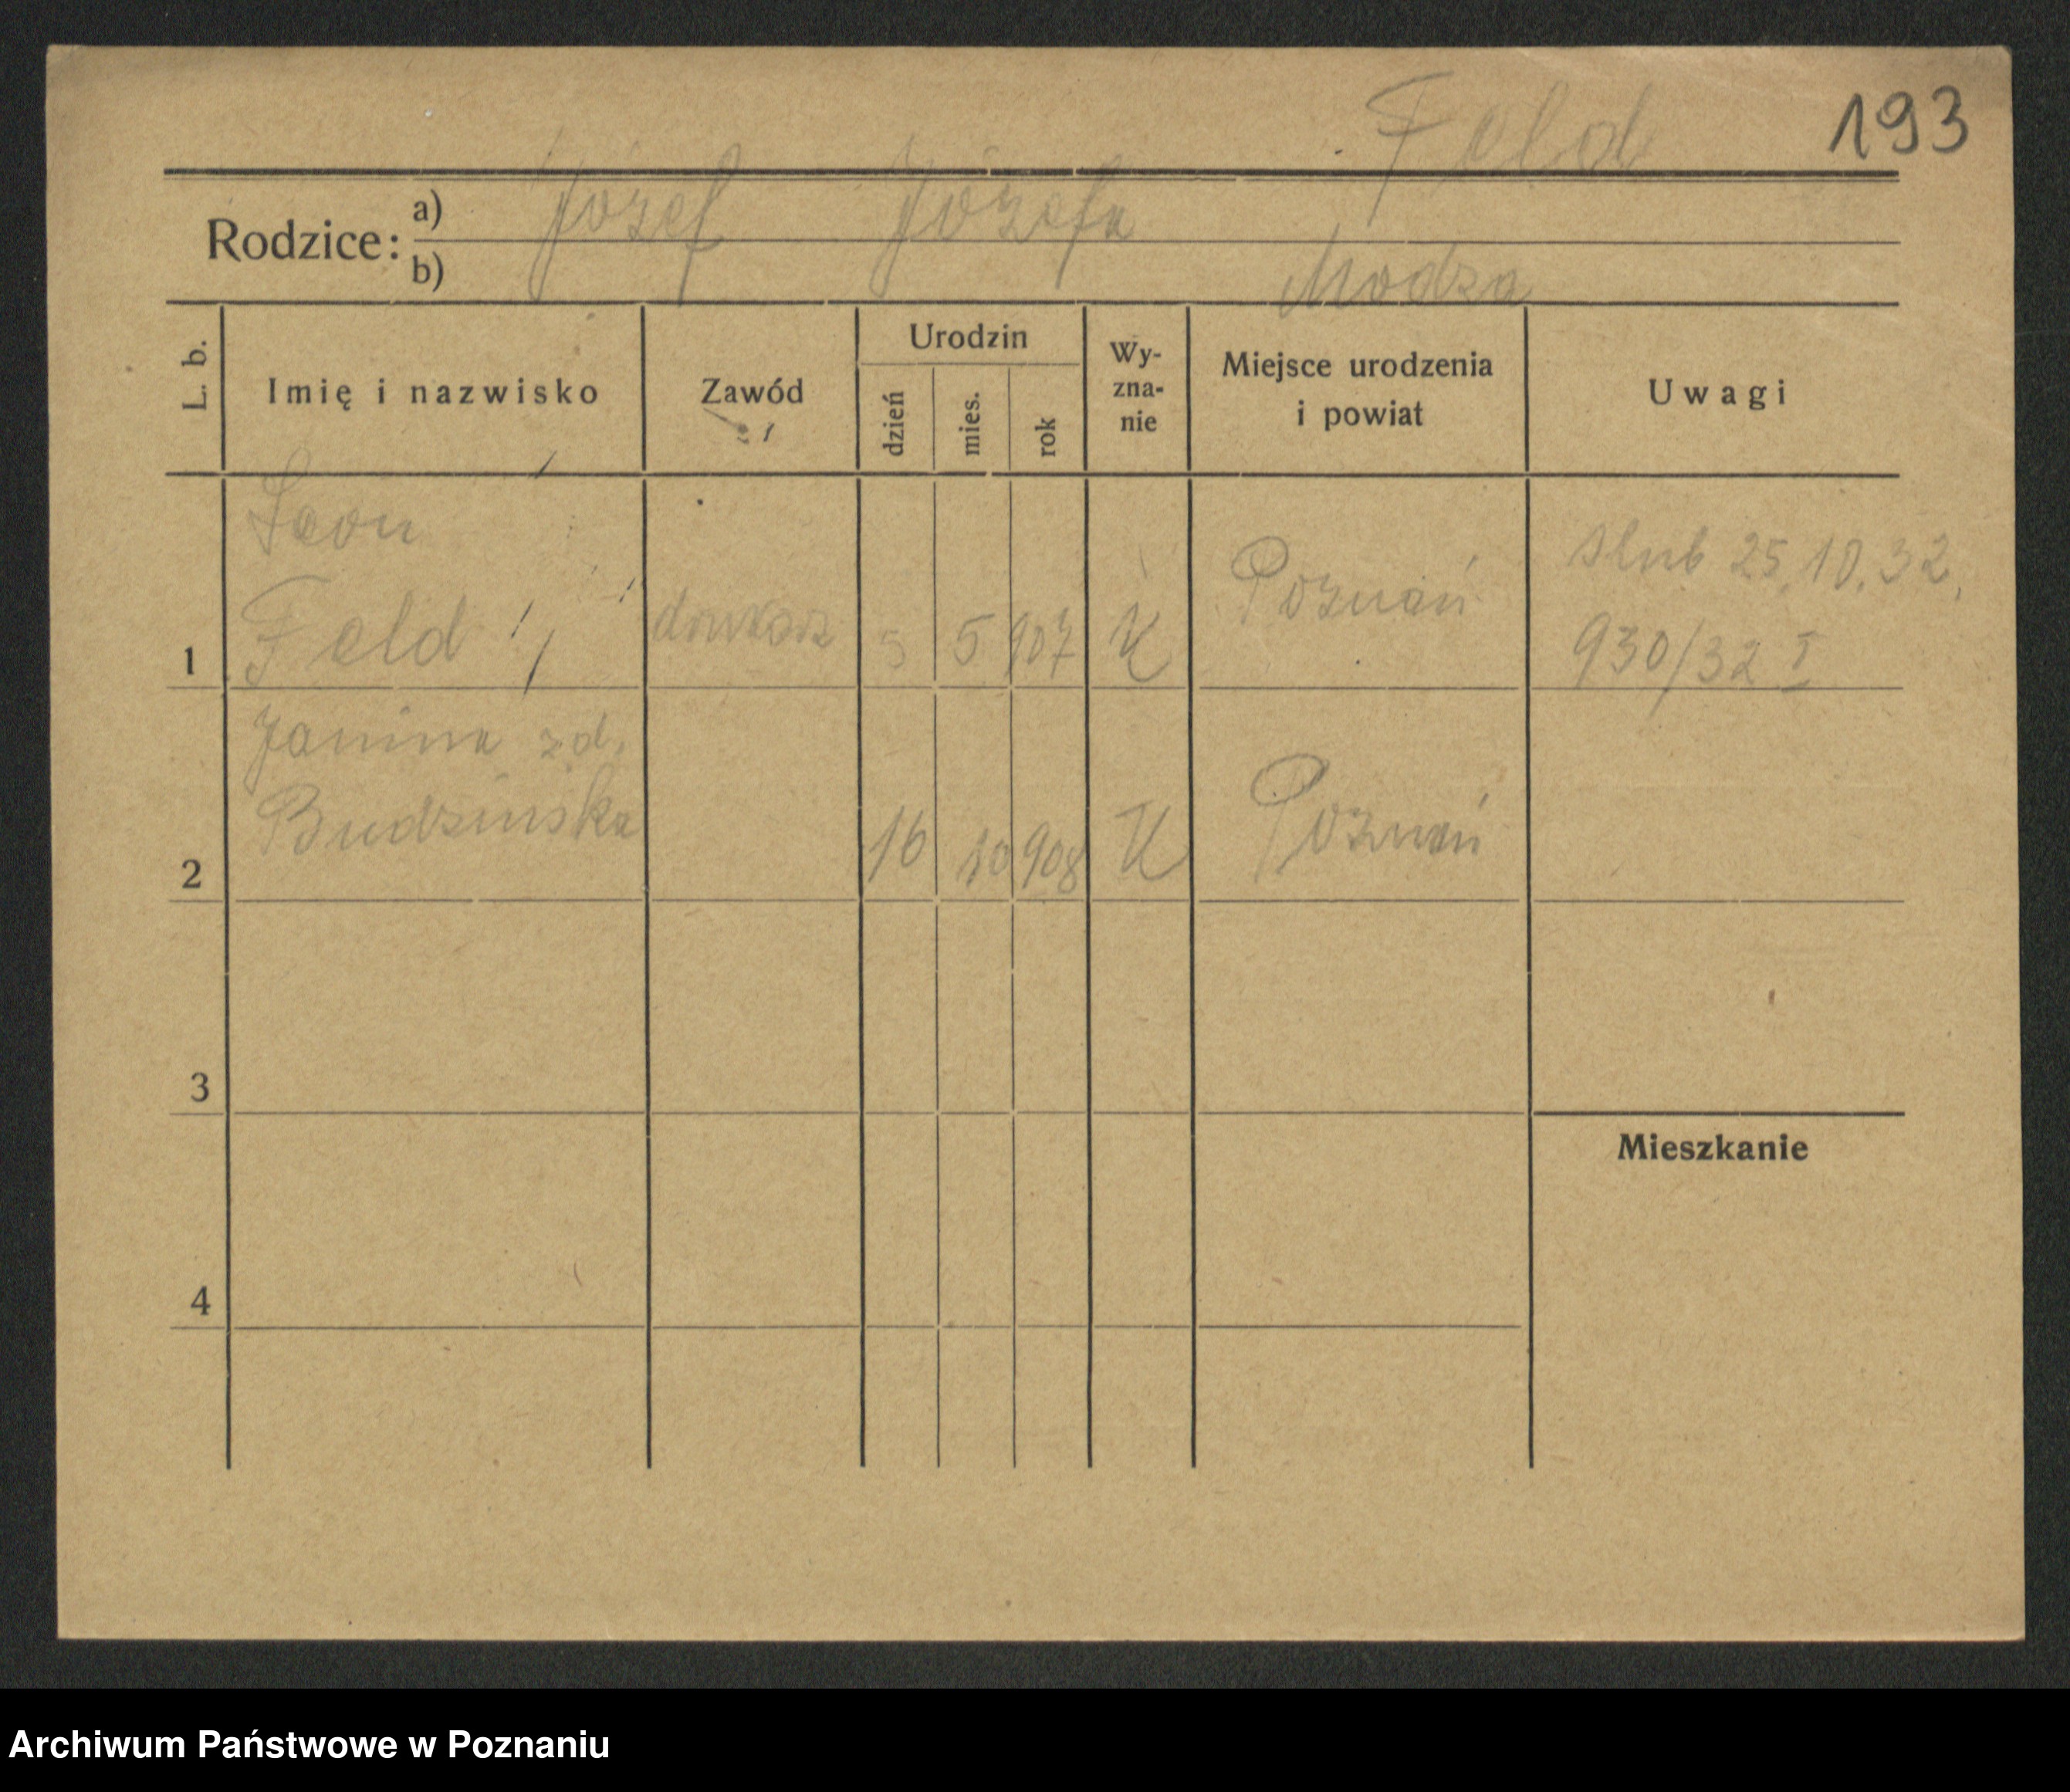 Feld 193
Rodzice: a) Józef Józefa
b) Modza
L. b. Imię i nazwisko Zawód Urodzin dzień mies. rok Wy-zna-nie Miejsce urodzenia i powiat Uwagi
Leon
Feld drukarz 5 5 907 K Poznań slub 25.10.32,
1 930/32 I
Janina zd.
Budzinska
2 16 10 908 K Poznań
3
Mieszkanie
4
Archiwum Państwowe w Poznaniu